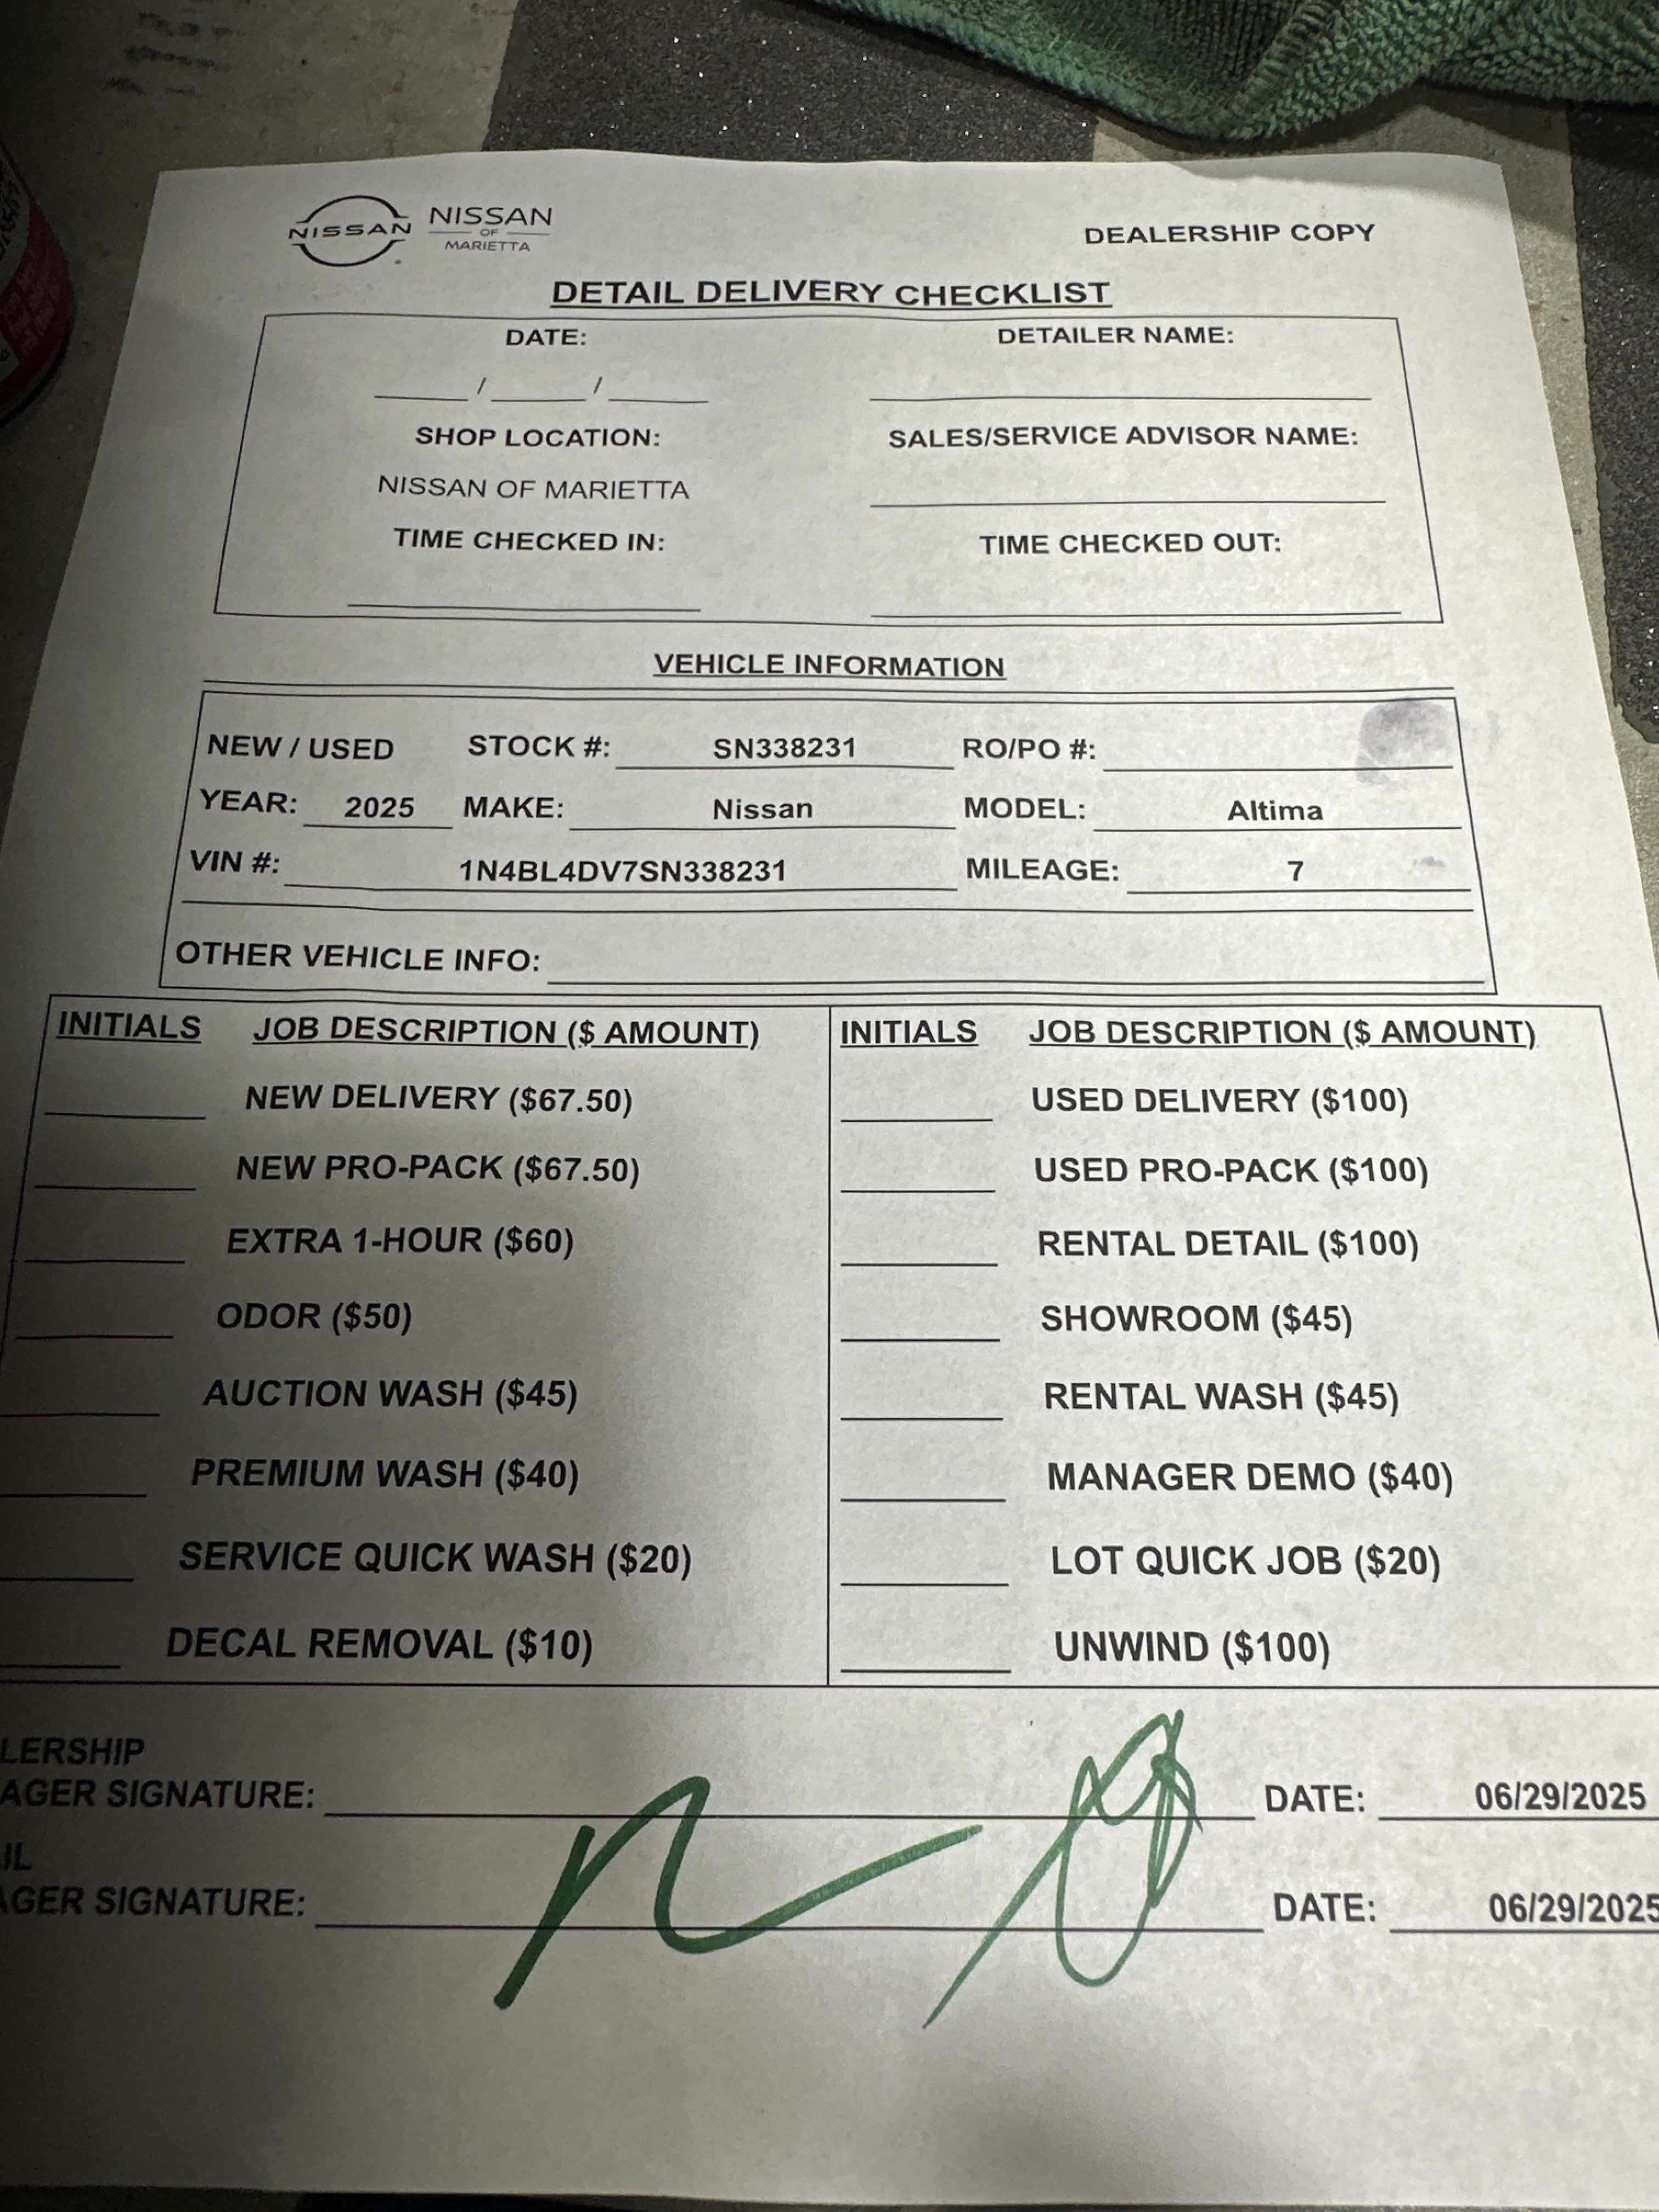 NISSAN NISSAN OF MARIETTA DEALERSHIP COPY
DETAIL DELIVERY CHECKLIST
DATE: DETAILER NAME:
/ /
SHOP LOCATION: SALES/SERVICE ADVISOR NAME:
NISSAN OF MARIETTA
TIME CHECKED IN: TIME CHECKED OUT:
VEHICLE INFORMATION
NEW / USED STOCK #: SN338231 RO/PO #:
YEAR: 2025 MAKE: Nissan MODEL: Altima
VIN #: 1N4BL4DV7SN338231 MILEAGE: 7
OTHER VEHICLE INFO:
INITIALS JOB DESCRIPTION ($ AMOUNT) INITIALS JOB DESCRIPTION ($ AMOUNT)
NEW DELIVERY ($67.50) USED DELIVERY ($100)
NEW PRO-PACK ($67.50) USED PRO-PACK ($100)
EXTRA 1-HOUR ($60) RENTAL DETAIL ($100)
ODOR ($50) SHOWROOM ($45)
AUCTION WASH ($45) RENTAL WASH ($45)
PREMIUM WASH ($40) MANAGER DEMO ($40)
SERVICE QUICK WASH ($20) LOT QUICK JOB ($20)
DECAL REMOVAL ($10) UNWIND ($100)
LERSHIP
AGER SIGNATURE: DATE: 06/29/2025
IL
AGER SIGNATURE: DATE: 06/29/2025